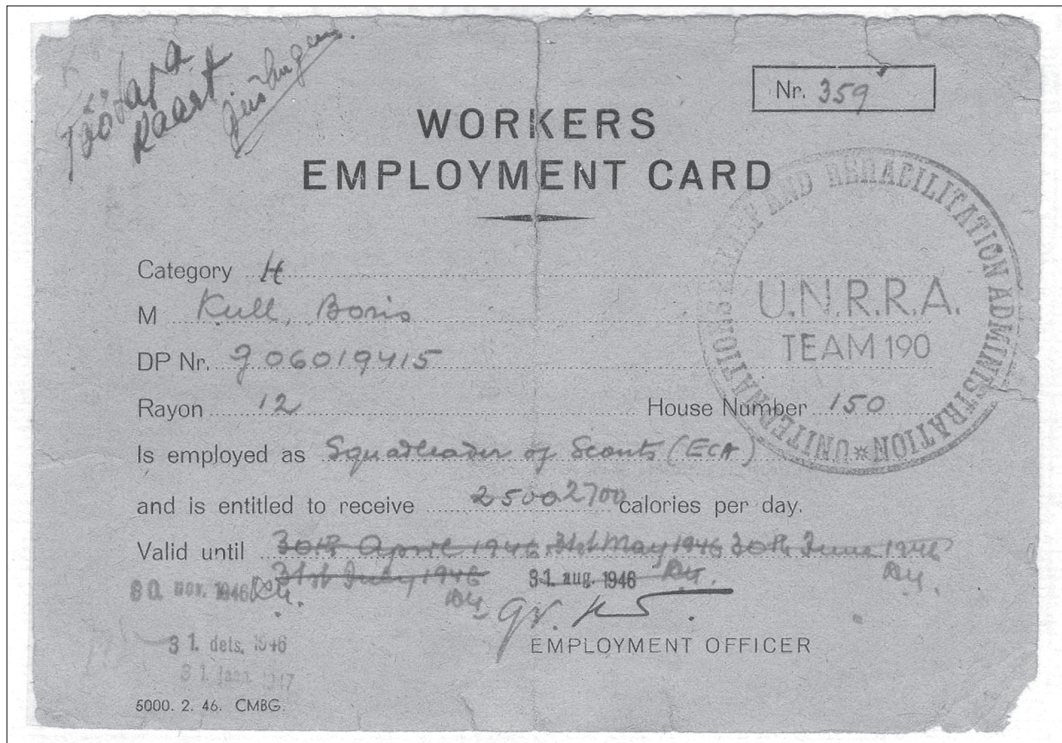 Nr. 359
WORKERS
EMPLOYMENT CARD
RELIEF AND REHABILITATION ADMINISTRATION * UNITED NATIONS
U.N.R.R.A.
TEAM 190
Category H
M Kull, Boris
DP Nr. g 06019415
Rayon 12 House Number 150
Is employed as Squadleader of Scouts (ECA)
and is entitled to receive 2500 2700 calories per day.
Valid until 30th April 1946. 31st May 1946 30th June 1946
31st July 1946 31. aug. 1946
30. nov. 1946
31. dets. 1946
31. jaan. 1947
EMPLOYMENT OFFICER
5000. 2. 46. CMBG.